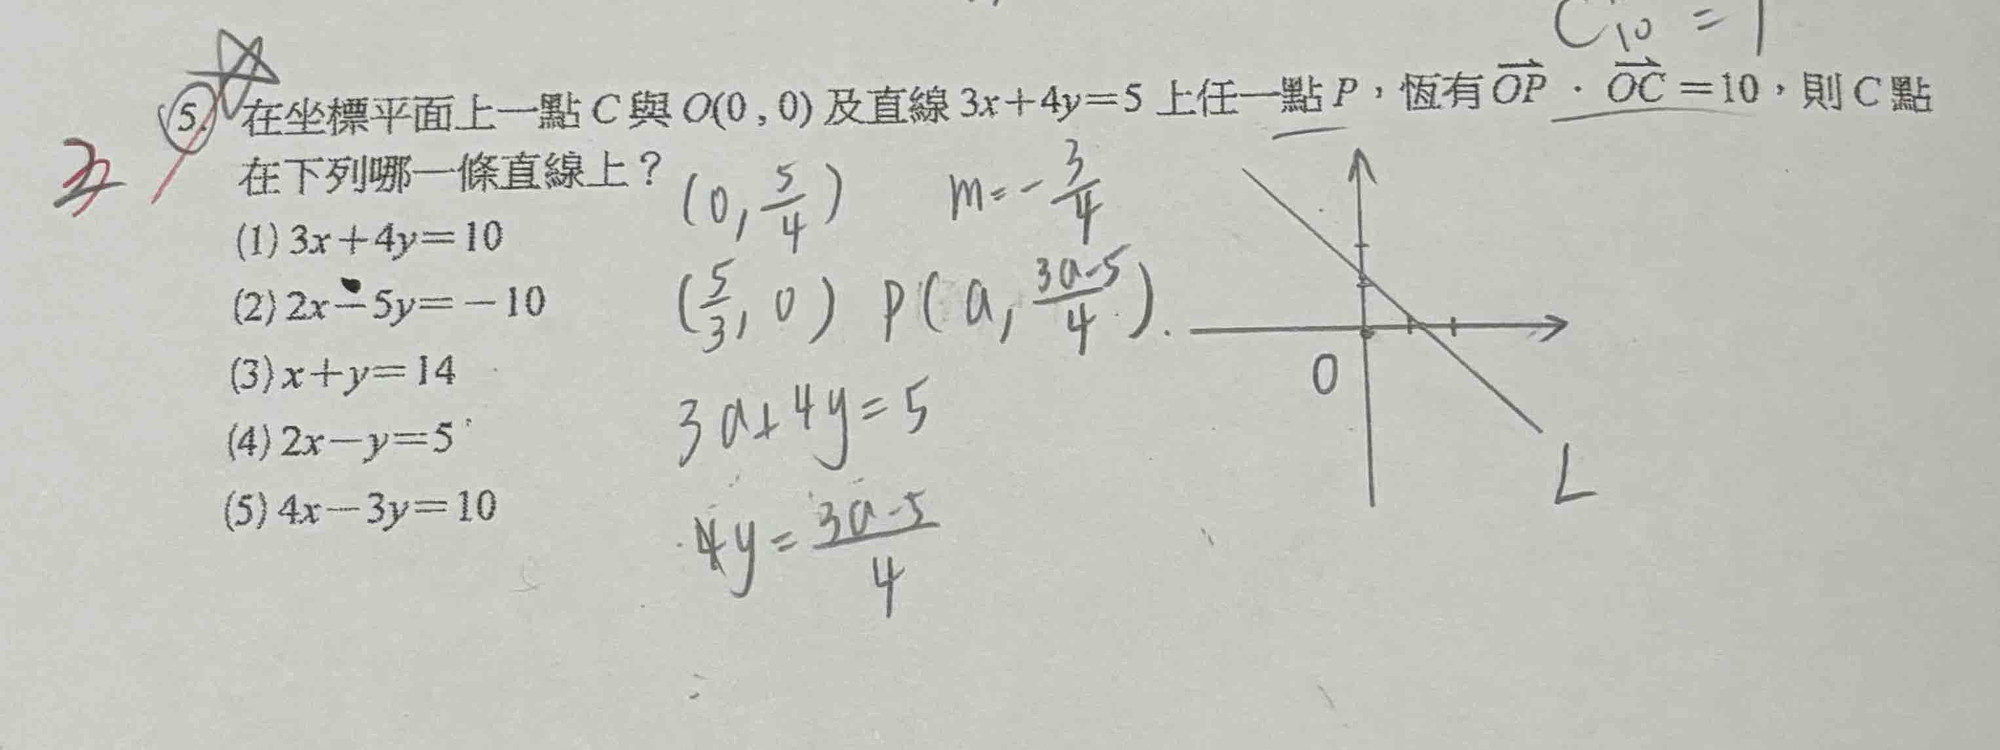 C₁₀ = 1
5. 在坐標平面上一點 C 與 O(0 , 0) 及直線 3x+4y=5 上任一點 P,恆有 $\overrightarrow{OP}$ · $\overrightarrow{OC}$ =10,則 C 點
在下列哪一條直線上?
(0, 5/4) m=-3/4
(1) 3x+4y=10
(2) 2x-5y=-10
(5/3, 0) P(a, (3a-5)/4).
(3) x+y=14
3a+4y=5
(4) 2x-y=5
O
L
(5) 4x-3y=10
4y=(3a-5)/4